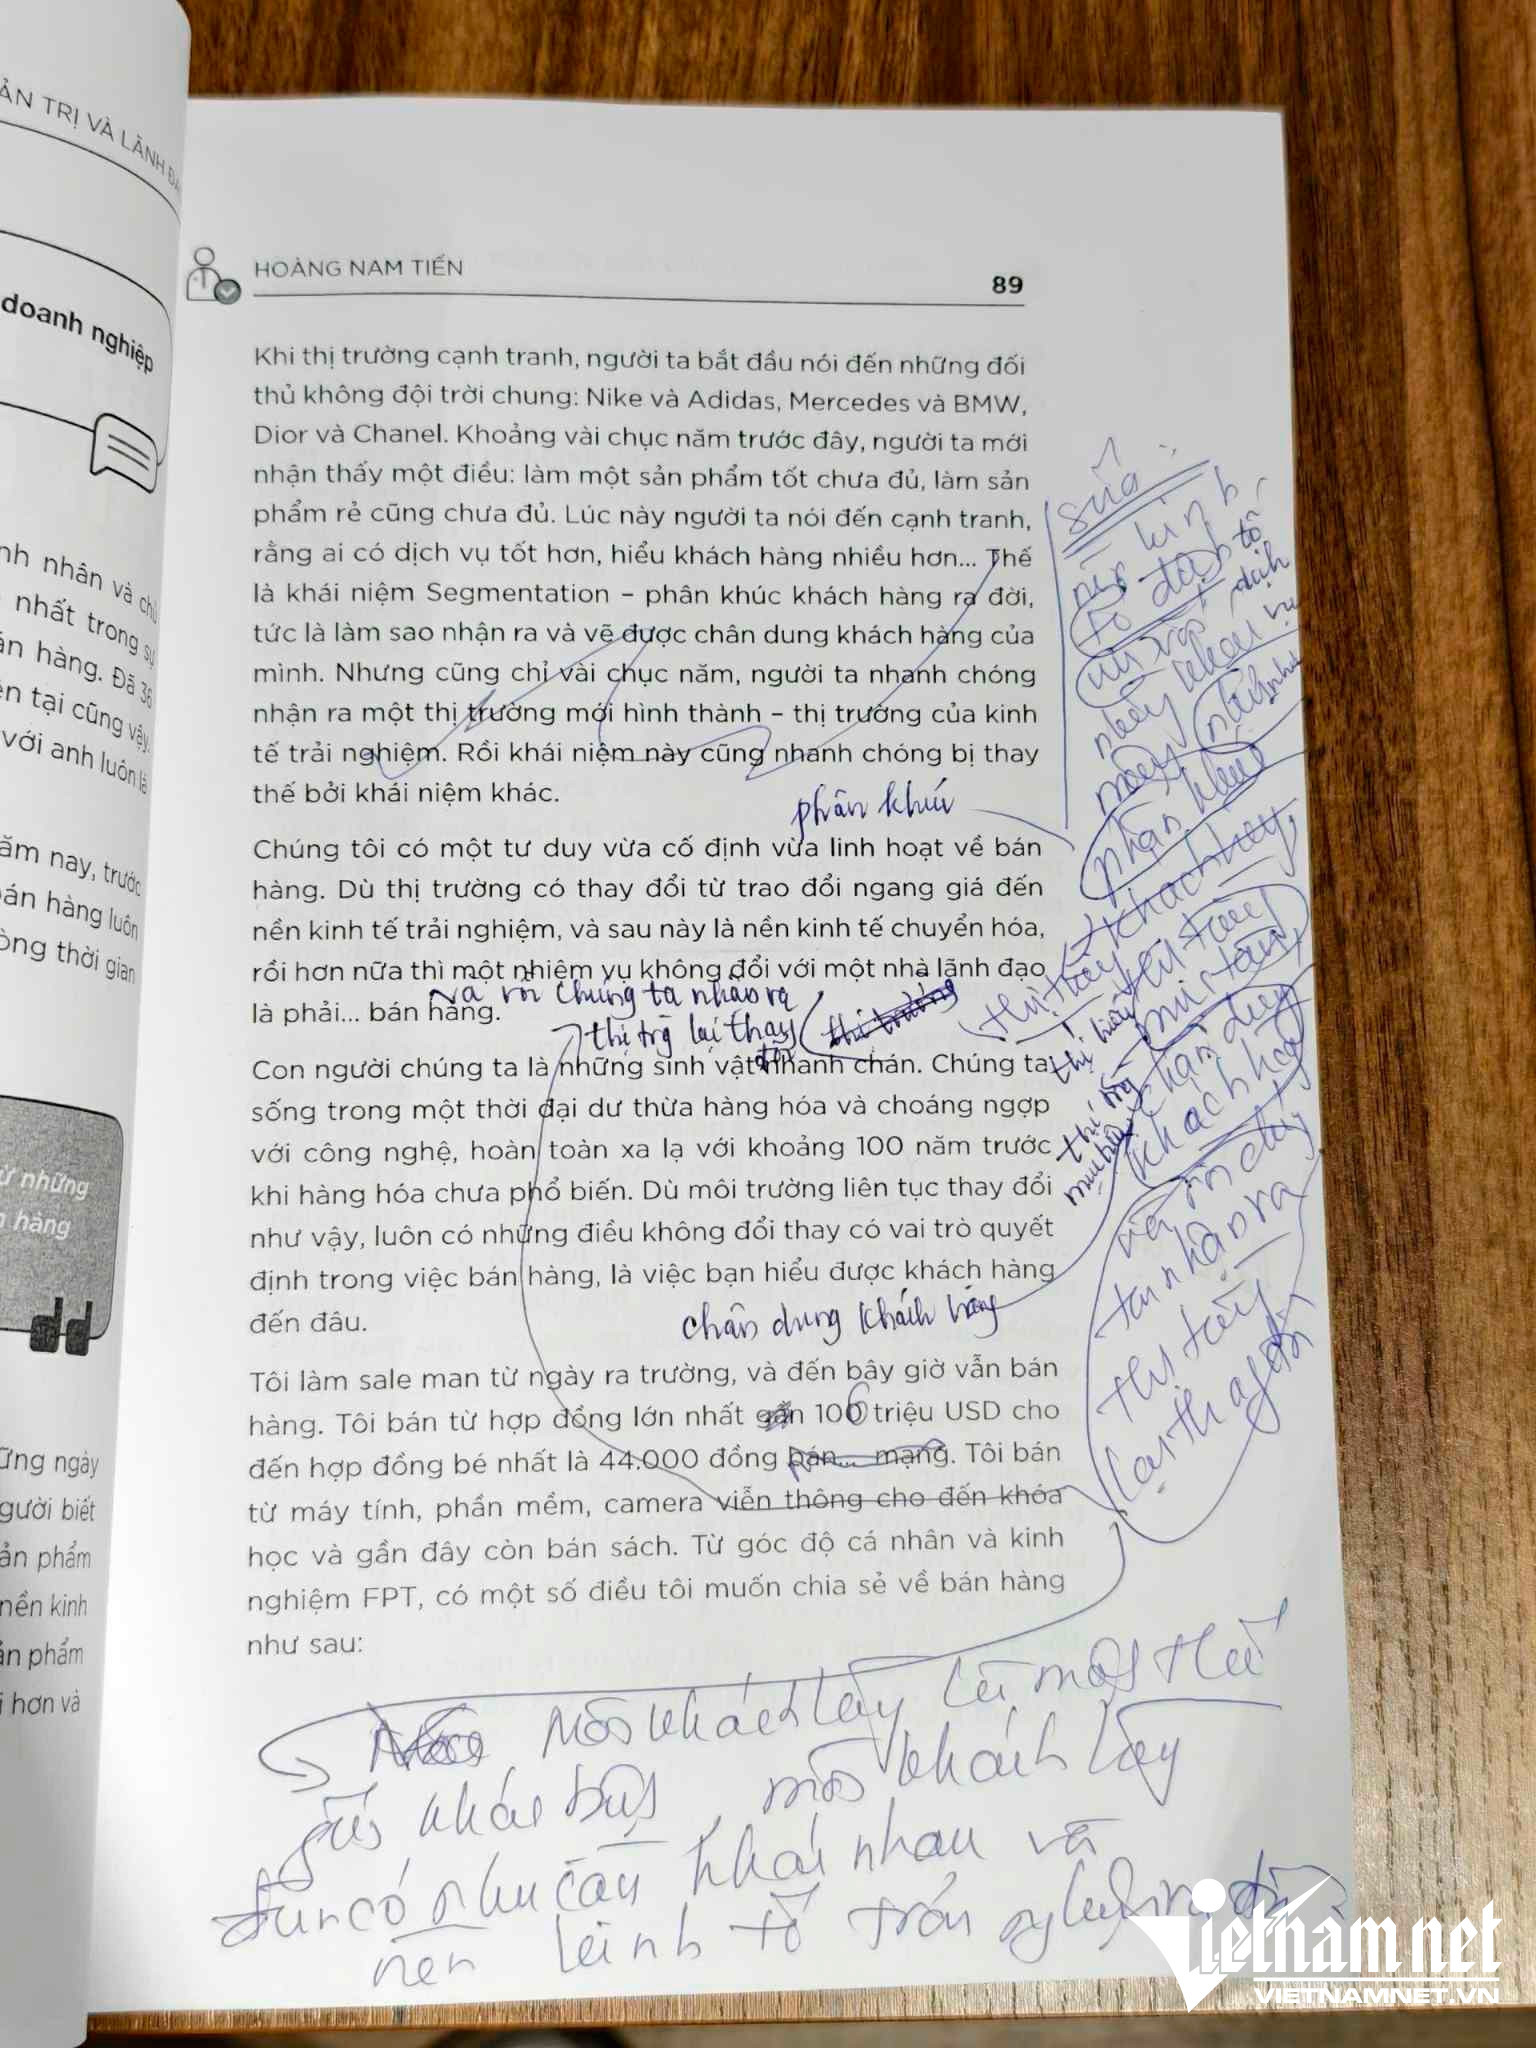 ẢN TRỊ VÀ LÃNH ĐẠ
doanh nghiệp
nh nhân và chủ
nhất trong sự
án hàng. Đã 36
ện tại cũng vậy.
với anh luôn là
ăm nay, trước
bán hàng luôn
òng thời gian
ừ những
n hàng
ững ngày
gười biết
ản phẩm
nền kinh
ản phẩm
i hơn và
HOÀNG NAM TIẾN
89
Khi thị trường cạnh tranh, người ta bắt đầu nói đến những đối
thủ không đội trời chung: Nike và Adidas, Mercedes và BMW,
Dior và Chanel. Khoảng vài chục năm trước đây, người ta mới
nhận thấy một điều: làm một sản phẩm tốt chưa đủ, làm sản
phẩm rẻ cũng chưa đủ. Lúc này người ta nói đến cạnh tranh,
rằng ai có dịch vụ tốt hơn, hiểu khách hàng nhiều hơn... Thế
là khái niệm Segmentation – phân khúc khách hàng ra đời,
tức là làm sao nhận ra và vẽ được chân dung khách hàng của
mình. Nhưng cũng chỉ vài chục năm, người ta nhanh chóng
nhận ra một thị trường mới hình thành – thị trường của kinh
tế trải nghiệm. Rồi khái niệm này cũng nhanh chóng bị thay
thế bởi khái niệm khác.
phân khúc
Chúng tôi có một tư duy vừa cố định vừa linh hoạt về bán
hàng. Dù thị trường có thay đổi từ trao đổi ngang giá đến
nền kinh tế trải nghiệm, và sau này là nền kinh tế chuyển hóa,
rồi hơn nữa thì một nhiệm vụ không đổi với một nhà lãnh đạo
là phải... bán hàng.
và rồi chúng ta nhận ra
thị trg lại thay
đổi
thị trường
Con người chúng ta là những sinh vật nhanh chán. Chúng ta
sống trong một thời đại dư thừa hàng hóa và choáng ngợp
với công nghệ, hoàn toàn xa lạ với khoảng 100 năm trước
khi hàng hóa chưa phổ biến. Dù môi trường liên tục thay đổi
như vậy, luôn có những điều không đổi thay có vai trò quyết
định trong việc bán hàng, là việc bạn hiểu được khách hàng
đến đâu.
chân dung khách hàng
Tôi làm sale man từ ngày ra trường, và đến bây giờ vẫn bán
hàng. Tôi bán từ hợp đồng lớn nhất gần 100 triệu USD cho
6
đến hợp đồng bé nhất là 44.000 đồng bán... mạng. Tôi bán
từ máy tính, phần mềm, camera viễn thông cho đến khóa
học và gần đây còn bán sách. Từ góc độ cá nhân và kinh
nghiệm FPT, có một số điều tôi muốn chia sẻ về bán hàng
như sau:
sửa
phân khúc
khách hàng
chân dung
khách hàng
và rồi chúng
ta nhận ra
thị trường
lại thay đổi
Mỗi khách hàng là một thế
giới khác biệt, mỗi khách hàng
đều có nhu cầu khác nhau và
nền kinh tế trải nghiệm ra đời
Vietnamnet
VIETNAMNET.VN